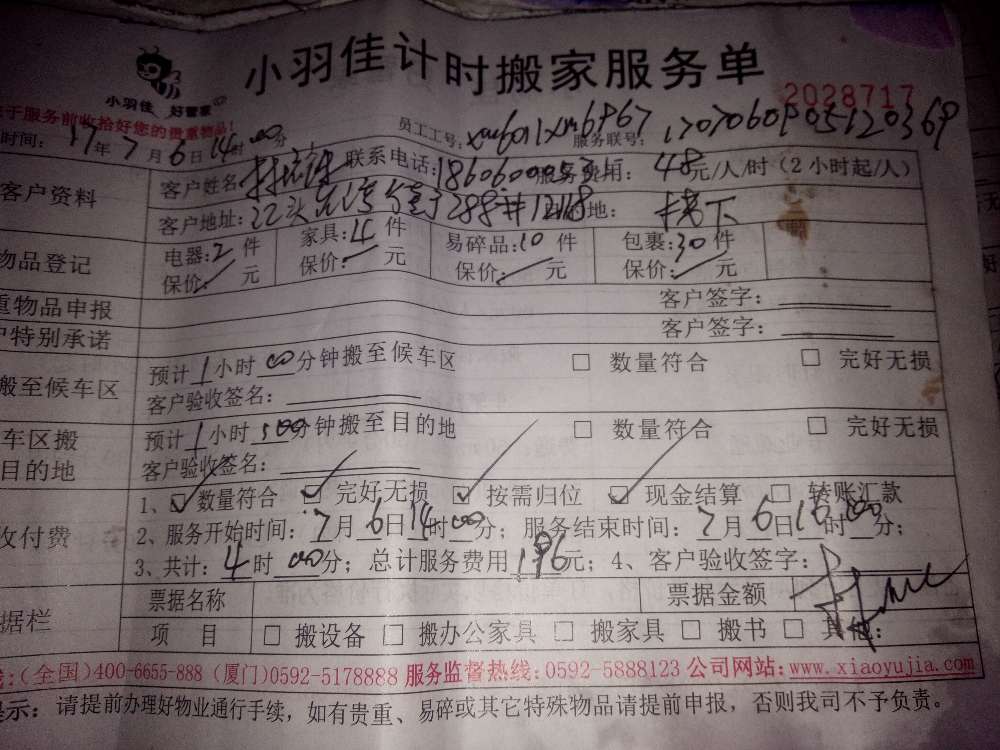 小羽佳计时搬家服务单
小羽佳 好管家
于服务前收拾好您的贵重物品!
2028717
时间: 17年7月6日14时00分 员工工号: 服务联号:
客户资料
客户姓名 联系电话: 服务费用: 48元/人/时(2小时起/人)
客户地址: 目的地: 楼下
物品登记
电器: 2件 家具: 4件 易碎品: 10件 包裹: 30件
保价: 元 保价: 元 保价: 元 保价: 元
重物品申报 客户签字:
户特别承诺 客户签字:
搬至候车区
预计1小时00分钟搬至候车区 □ 数量符合 □ 完好无损
客户验收签名:
车区搬
目的地
预计1小时00分钟搬至目的地 □ 数量符合 □ 完好无损
客户验收签名:
收付费
1、☑ 数量符合 ☑ 完好无损 ☑ 按需归位 ☑ 现金结算 □ 转账汇款
2、服务开始时间: 7月6日14时00分; 服务结束时间: 7月6日时00分;
3、共计: 4时00分; 总计服务费用元; 4、客户验收签字:
据栏
票据名称 票据金额
项 目 □ 搬设备 □ 搬办公家具 □ 搬家具 □ 搬书 □ 其他:
线:(全国)400-6655-888 (厦门)0592-5178888 服务监督热线:0592-5888123 公司网站:www.xiaoyujia.com
提示: 请提前办理好物业通行手续,如有贵重、易碎或其它特殊物品请提前申报,否则我司不予负责。